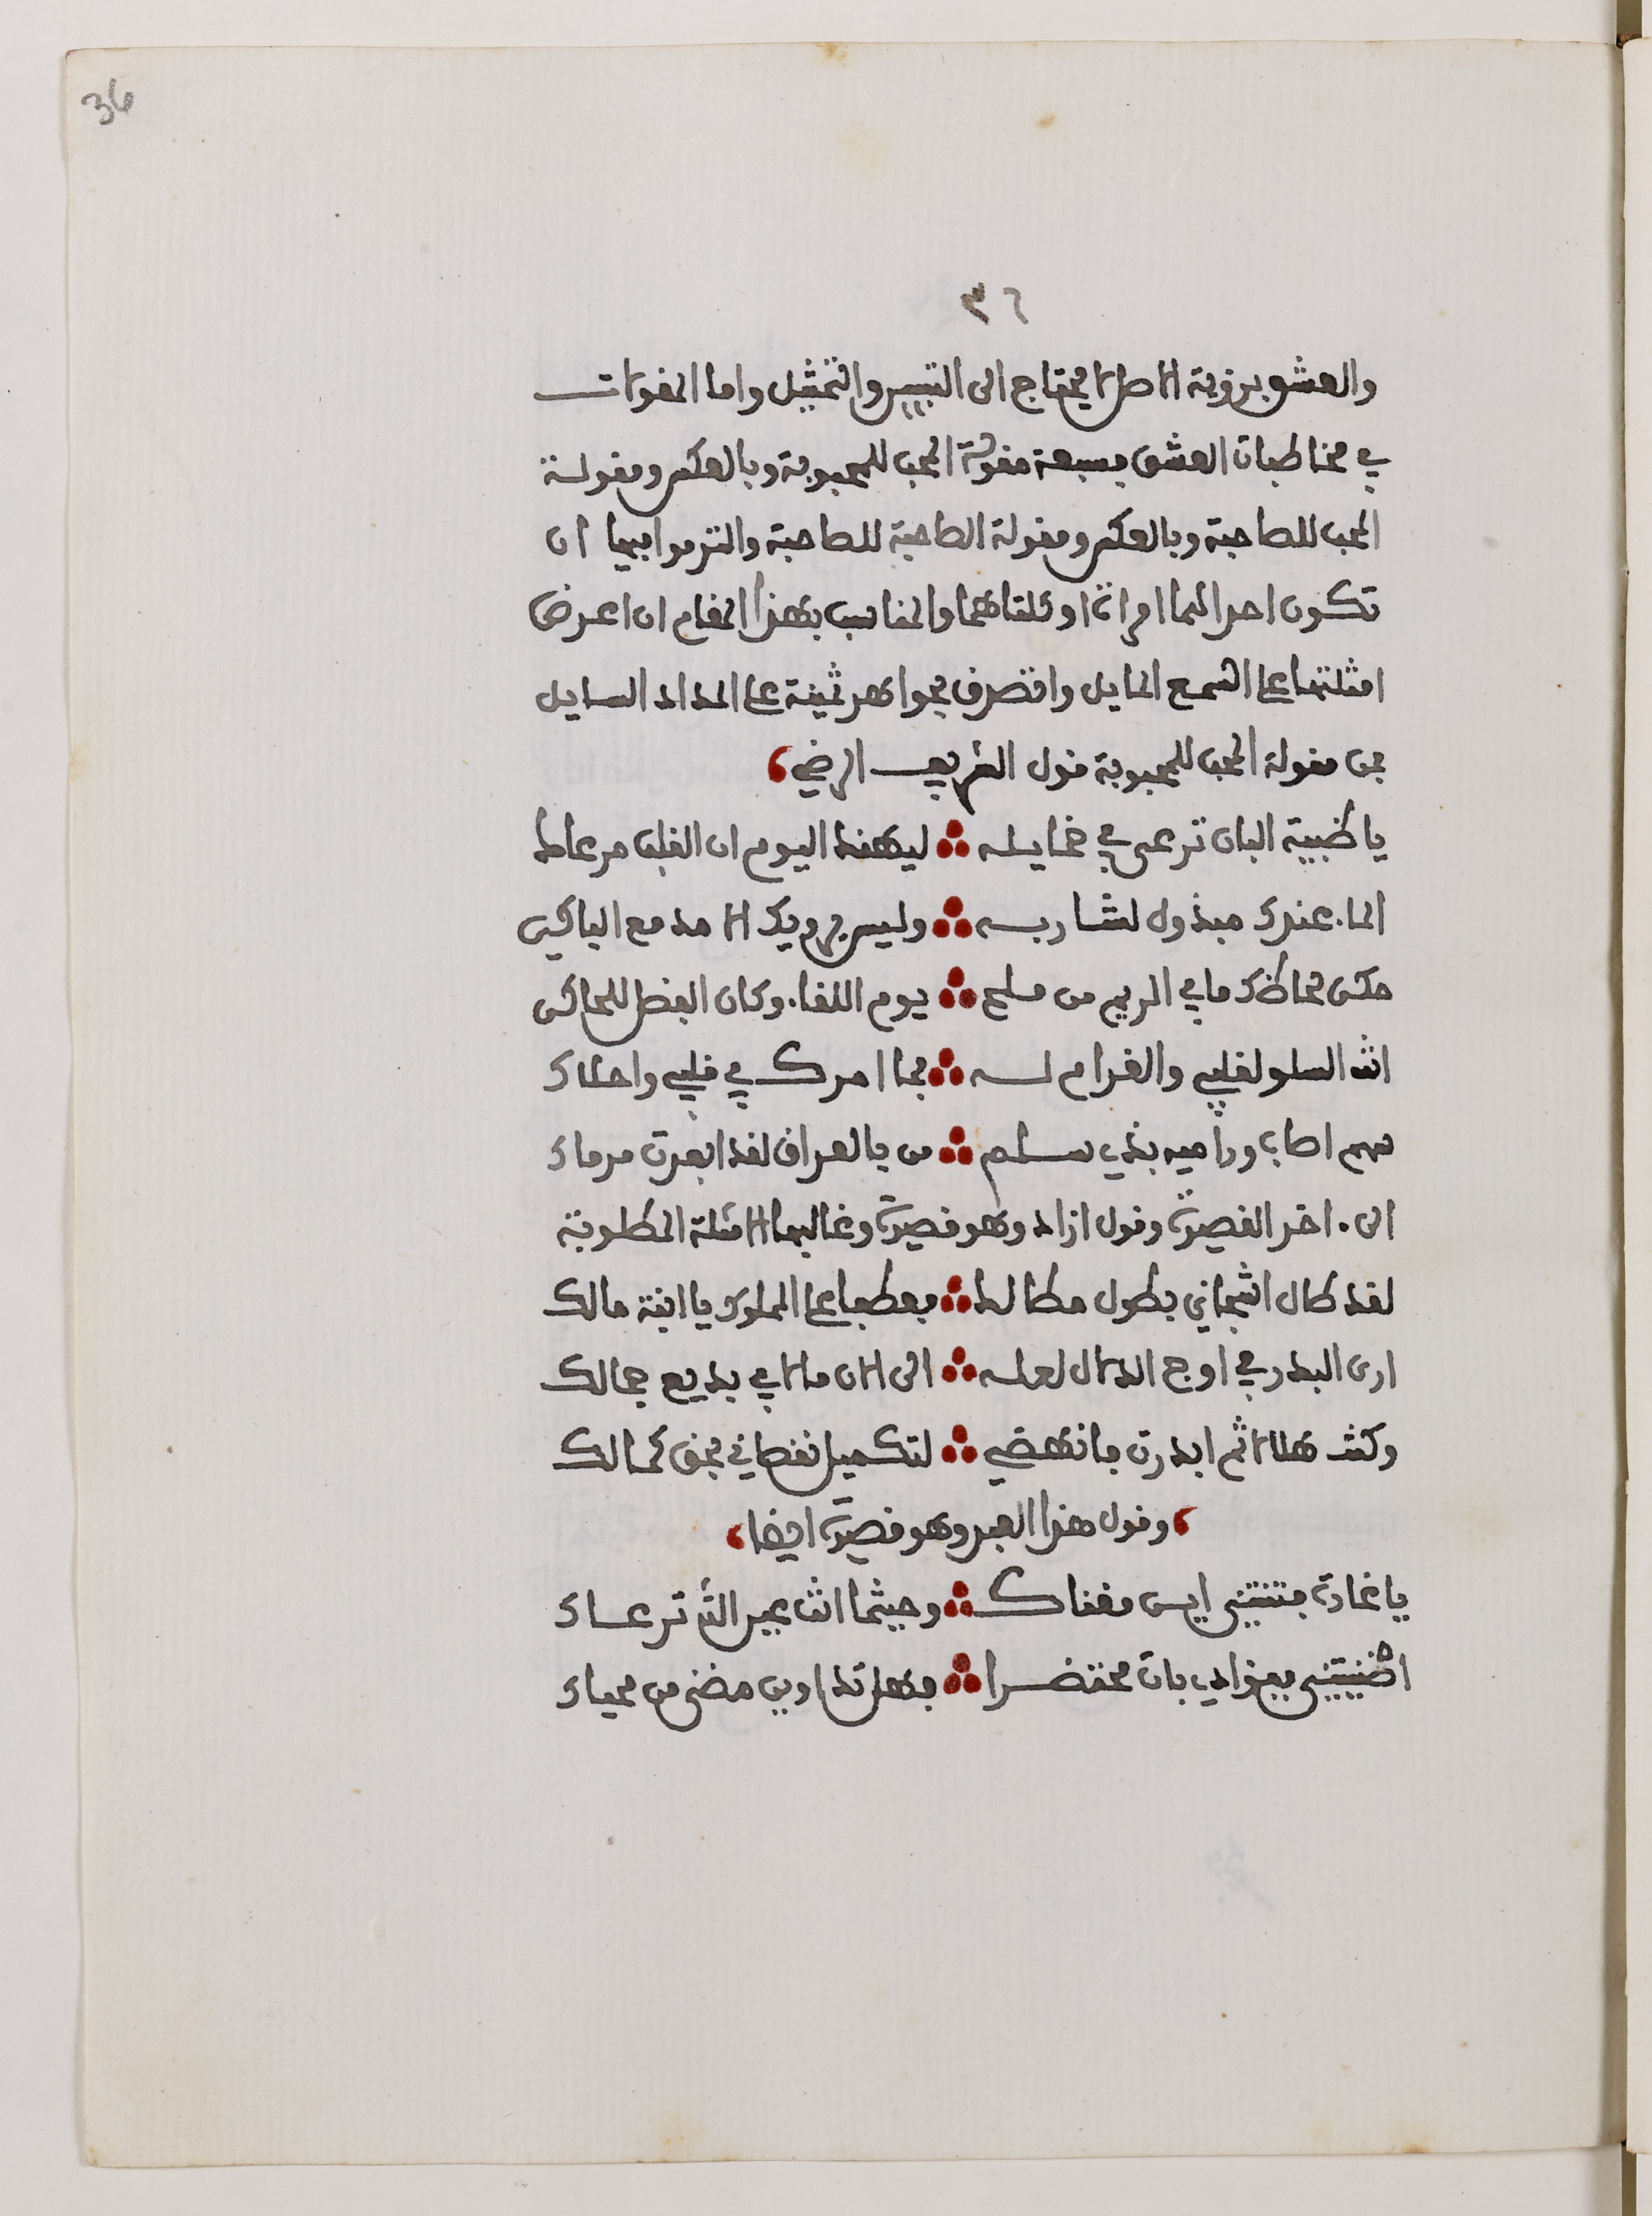 36
٣٦
والعشق برؤية الاصل لا يحتاج الى التبيين والتمثيل واما المقولات
في مخاطبات العشق فسبعة مقولة المحب للمحبوبة وبالعكس ومقولة
المحب للصاحبة وبالعكس ومقولة الصاحبة للصاحبة والتزموا فيها ان
تكون احداهما امراة او كلتاهما والمناسب بهذا المقام ان اعرض
امثلتها على السمع المايل واتصرف بجواهر ثمينة على المداد السايل
فمن مقولة المحب للمحبوبة قول الشريف الرضي
يا ظبية البان ترعى في خمايله ليهنك اليوم ان القلب مرعاك
الماء عندك مبذول لشاربه وليس يرويك الا مدمع الباكي
حكى لحاظك ما في الريم من ملح يوم اللقاء وكان الفضل للحاكى
انت السلو لقلبي والغرام له فما امرك في قلبي واحلاك
سهم اصاب وراميه بذي سلم من بالعراق لقد ابعدت مرماك
الى ءاخر القصيدة وقول ازاد وهو قصيدة وغالبها الامثلة المطلوبة
لقد طال اشجاني بطول مطالك فعطفا على المملوك يا ابنة مالك
ارى البدر في اوج الدلال لعله الى الان ما لاقى بديع جمالك
وكنت هلالا ثم ابدرت فانهضي لتكميل نقصاني بحق كمالك
وقول هذا العبد وهو قصيدة ايضا
يا غادة فتنتنى اين مغناك وحيثما انت عين الله ترعاك
اضنيتنى ففؤادي بات محتضرا فهل تداوين مضنى من محياك